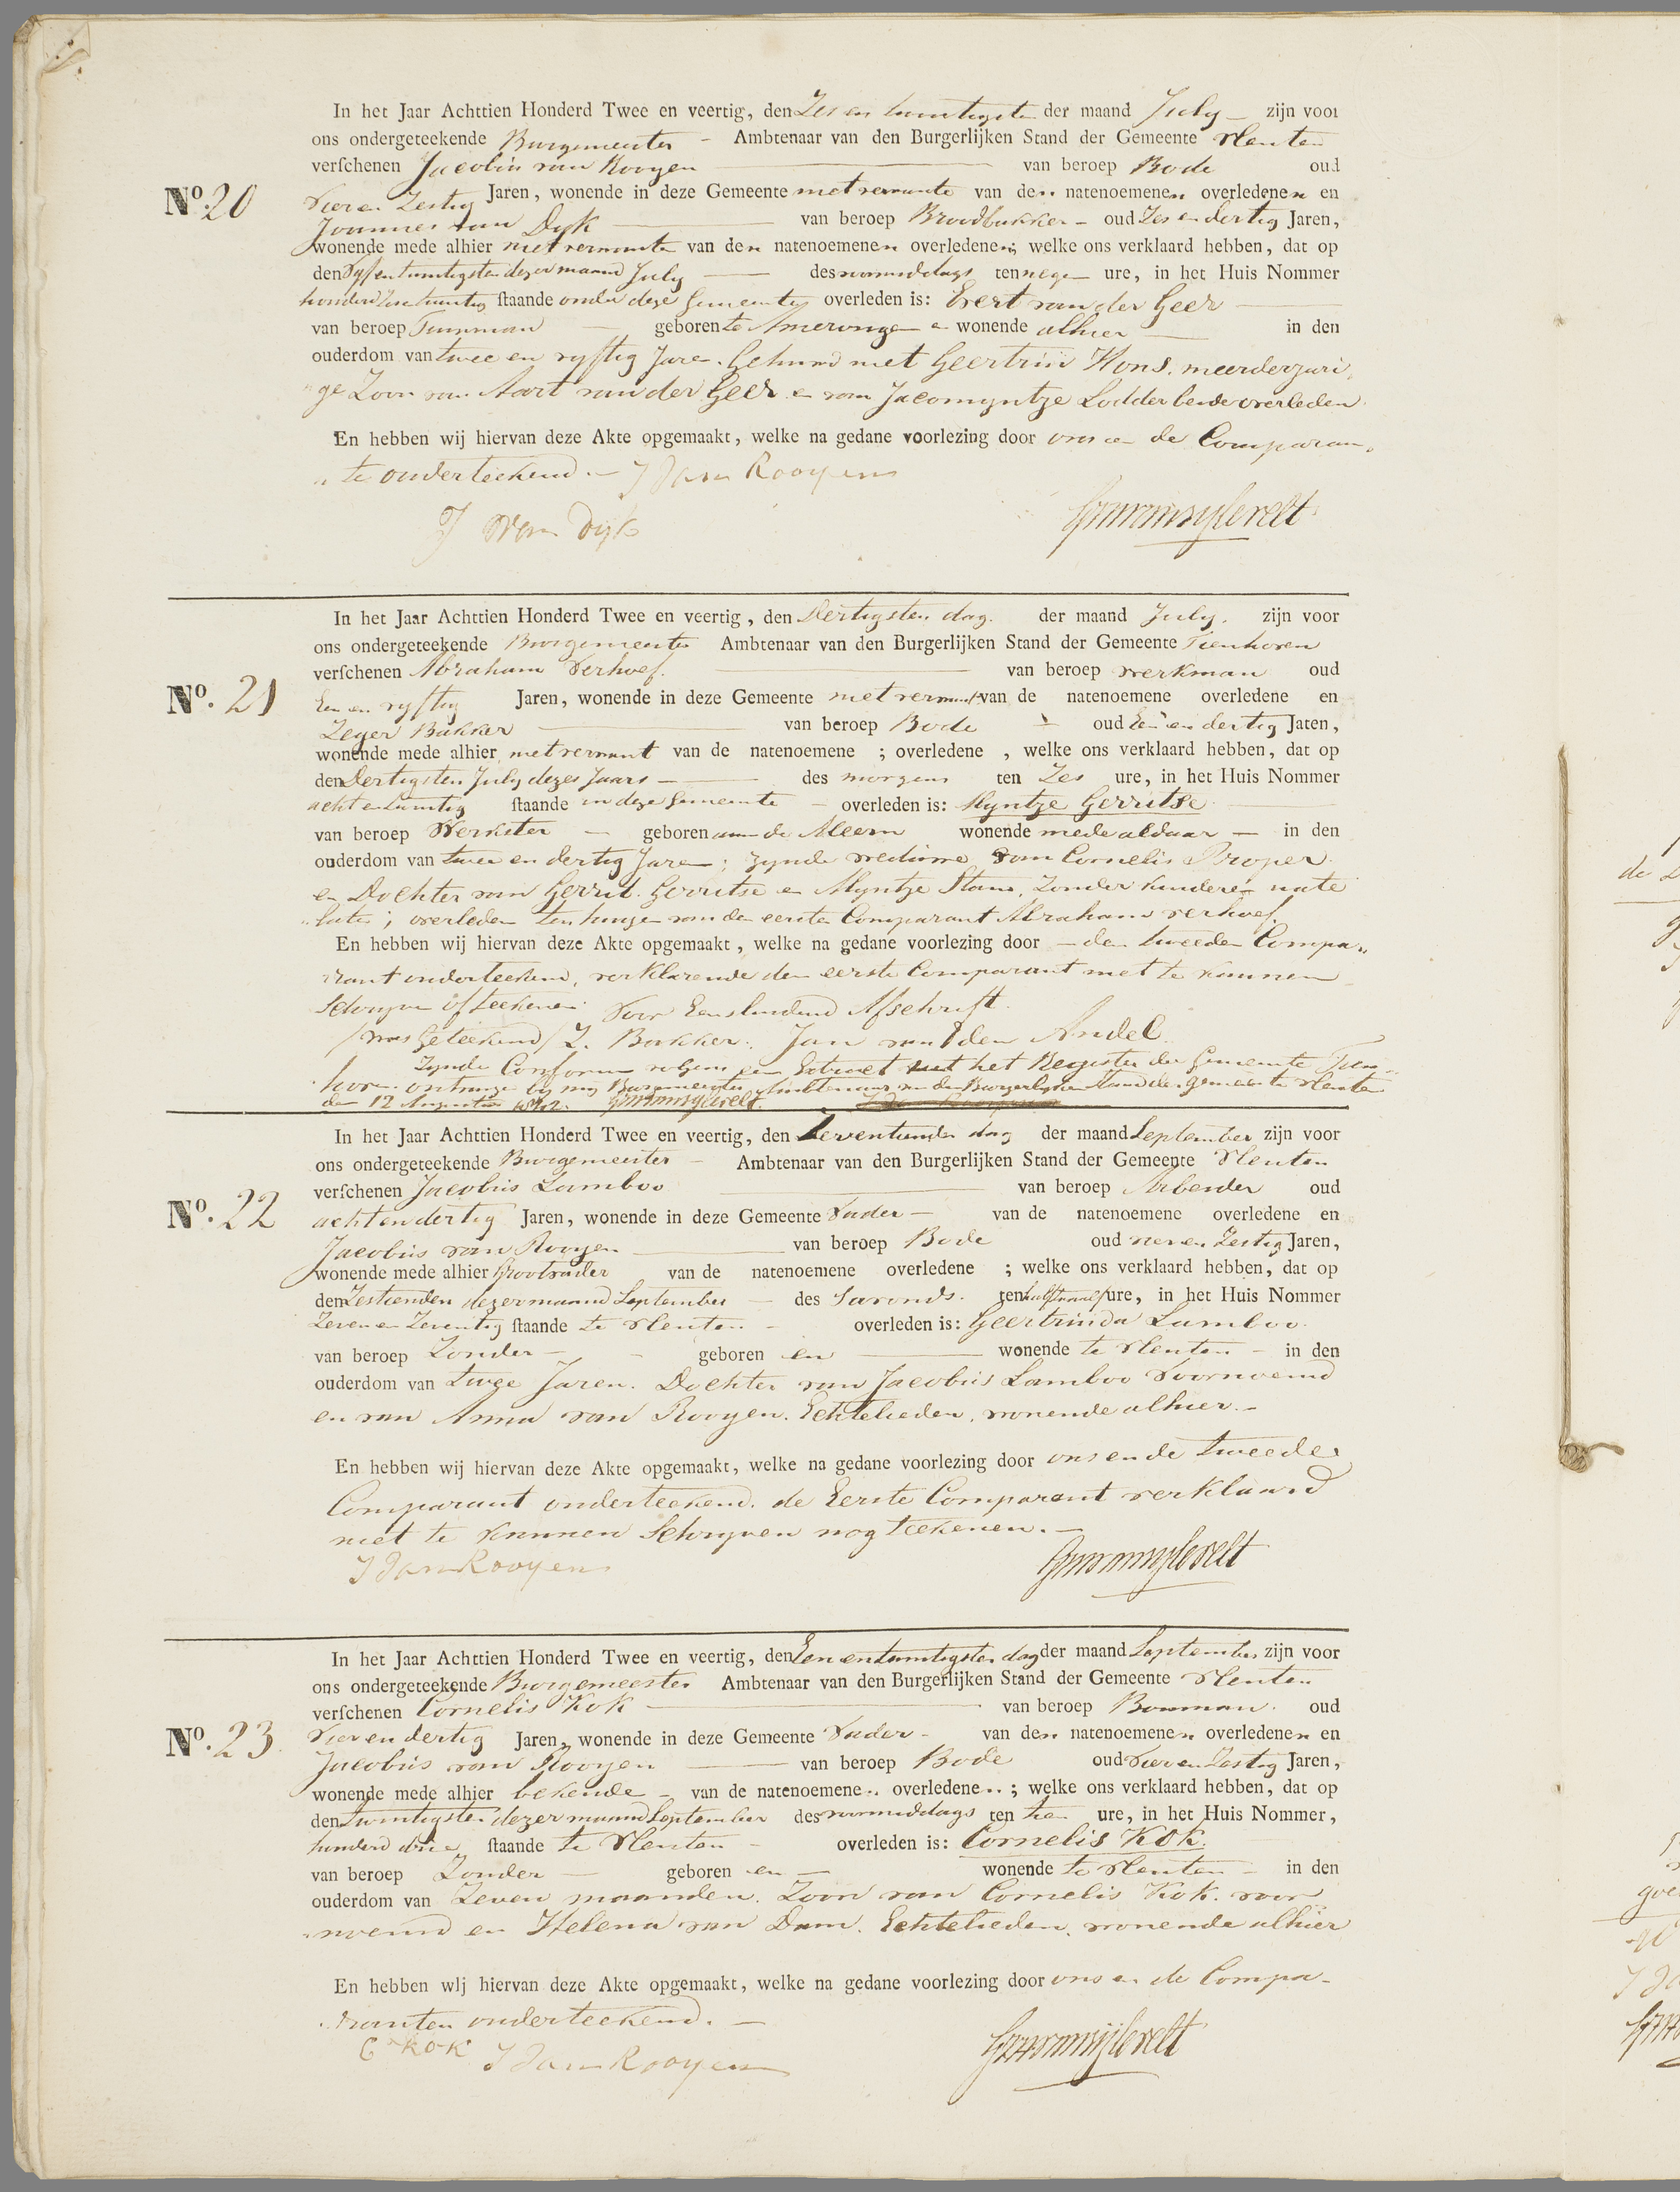 In het Jaar Achttien Honderd Twee en veertig, den Zes en twintigsten der maand July zijn voor
ons ondergeteekende Burgemeester - Ambtenaar van den Burgerlijken Stand der Gemeente Vleuten
verschenen Jacobus van Rooyen van beroep Bode oud
No. 20
Vier en Zestig Jaren, wonende in deze Gemeente niet vermante van den natenoemenen overledenen en
Joannes van Dijk van beroep Broodbakker - oud Zes en dertig Jaren,
wonende mede alhier niet vermante van den natenoemenen overledenen; welke ons verklaard hebben, dat op
den Vyf en twintigsten dezer maand July des voormiddags ten negen ure, in het Huis Nommer
honderd staande onder deze Gemeente overleden is: Evert van der Geer
van beroep Timmerman geboren te Amerongen en wonende alhier in den
ouderdom van twee en vyftig Jaren. Gehuwd met Geertrui Hons. meerderjari
ge Zoon van Aart van der Geer en van Jacomyntje Lodder beide overleden.
En hebben wij hiervan deze Akte opgemaakt, welke na gedane voorlezing door ons en de Comparan
te onderteekend. - J Van Rooyen
J Van Dijk
No. 21
In het Jaar Achttien Honderd Twee en veertig, den Dertigsten dag der maand July. zijn voor
ons ondergeteekende Burgemeester Ambtenaar van den Burgerlijken Stand der Gemeente Tienhoven
verschenen Abraham Verhoef. van beroep werkman oud
Een en vyftig Jaren, wonende in deze Gemeente niet vermant van de natenoemene overledene en
Zeger Bakker van beroep Bode oud Een en dertig Jaren,
wonende mede alhier niet vermant van de natenoemene ; overledene , welke ons verklaard hebben, dat op
den Dertigsten July dezes Jaars des morgens ten Zes ure, in het Huis Nommer
acht en twintig staande in deze Gemeente - overleden is: Myntje Gerritse
van beroep Werkster - geboren aan de Meern wonende mede aldaar - in den
ouderdom van twee en dertig Jaren; zynde weduwe van Cornelis Proper
en Dochter van Gerrit Gerritse en Myntje Stam, Zonder kinderen nate
laten; overleden ten huize van den eersten Comparant Abraham verhoef.
En hebben wij hiervan deze Akte opgemaakt, welke na gedane voorlezing door - den tweeden Compa
rant onderteekend, verklarende den eerste Comparant niet te kunnen
Schryven of teekenen. Voor Eensluidend Afschrift.
/was Geteekend/ Z. Bakker. Jan van den Andel
Zynde Conform volgens een Extract uit het Register der Gemeente Tien
hoven ontvangen by my Burgemeester Ambtenaar van den Burgerlyken Stand der Gemeente Vleuten
den 12 Augustus 1842.
No. 22
In het Jaar Achttien Honderd Twee en veertig, den Zeventienden dag der maand September zijn voor
ons ondergeteekende Burgemeester - Ambtenaar van den Burgerlijken Stand der Gemeente Vleuten
verschenen Jacobus Lamboo van beroep Arbeider oud
acht en dertig Jaren, wonende in deze Gemeente Vader - van de natenoemene overledene en
Jacobus van Rooyen van beroep Bode oud vier en Zestig Jaren,
wonende mede alhier Grootvader van de natenoemene overledene ; welke ons verklaard hebben, dat op
den Zestienden dezer maand September - des Savonds ten half twaalf ure, in het Huis Nommer
Zeven en Zeventig staande te Vleuten - overleden is: Geertruida Lamboo.
van beroep Zonder - geboren en wonende te Vleuten - in den
ouderdom van twee Jaren. Dochter van Jacobus Lamboo Voornoemd
en van Anna van Rooyen. Echtelieden, wonende alhier. -
En hebben wij hiervan deze Akte opgemaakt, welke na gedane voorlezing door ons en de tweede
Comparant onderteekend. de Eerste Comparant verklaard
niet te kunnen Schryven nog teekenen. -
J Van Rooyen
No. 23
In het Jaar Achttien Honderd Twee en veertig, den Een en twintigsten dag der maand September zijn voor
ons ondergeteekende Burgemeester Ambtenaar van den Burgerlijken Stand der Gemeente Vleuten
verschenen Cornelis Kok van beroep Bouman oud
Vier en dertig Jaren, wonende in deze Gemeente Vader - van den natenoemenen overledenen en
Jacobus van Rooyen van beroep Bode oud Vier en Zestig Jaren,
wonende mede alhier bekende - van de natenoemenen overledenen; welke ons verklaard hebben, dat op
den Twintigsten dezer maand September des voormiddags ten tien ure, in het Huis Nommer,
honderd drie staande te Vleuten - overleden is: Cornelis Kok.
van beroep Zonder - geboren en - wonende te Vleuten - in den
ouderdom van Zeven maanden. Zoon van Cornelis Kok. voor
noemd en Helena van Dam. Echtelieden, wonende alhier
En hebben wlj hiervan deze Akte opgemaakt, welke na gedane voorlezing door ons en de Compa-
ranten onderteekend. -
C Kok J Van Rooyen